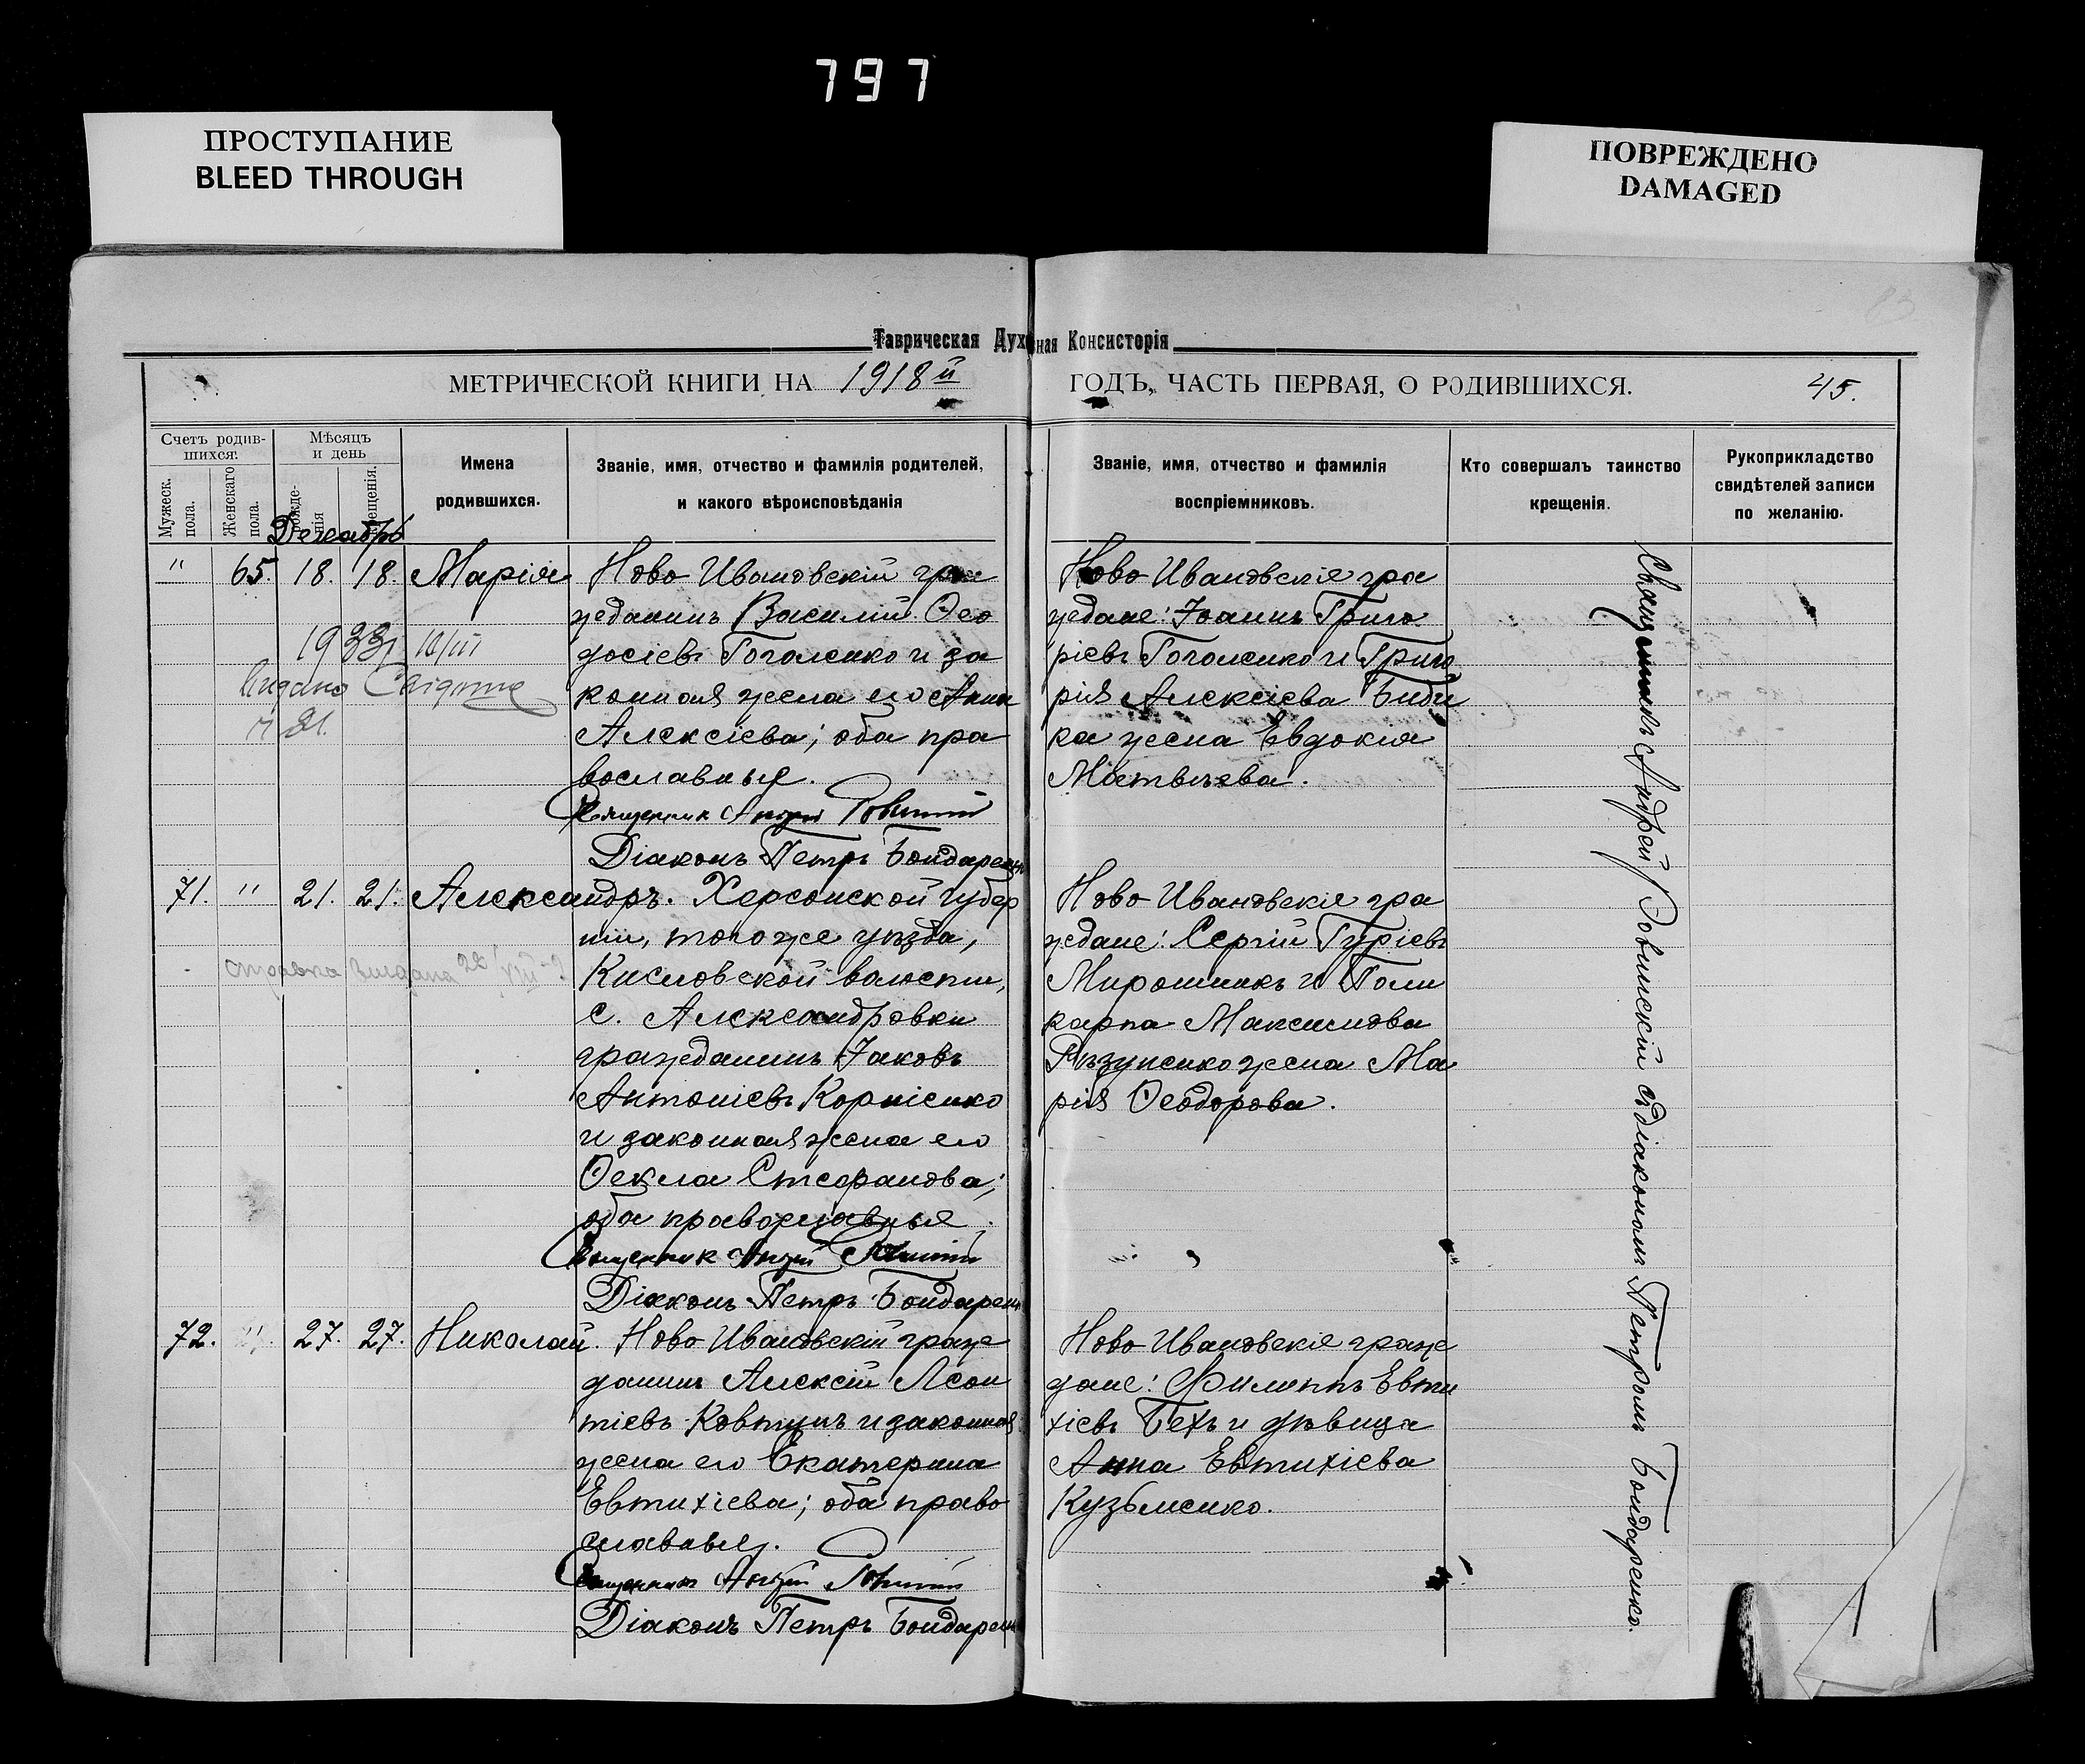 797
ПРОСТУПАНИЕ
BLEED THROUGH
ПОВРЕЖДЕНО
DAMAGED
Таврическая Духовная Консисторія
МЕТРИЧЕСКОЙ КНИГИ НА 1918й ГОДЪ, ЧАСТЬ ПЕРВАЯ, О РОДИВШИХСЯ. 45.
Счетъ родив-
шихся.
Мужеск.
пола.
Женскаго
пола.
Мѣсяцъ
и день
рожде-
нія
крещенія.
Имена
родившихся.
Званіе, имя, отчество и фамилія родителей,
и какого вѣроисповѣданія
Званіе, имя, отчество и фамилія
воспріемниковъ.
Кто совершалъ таинство
крещенія.
Рукоприкладство
свидѣтелей записи
по желанію.
Декабрь
" 65. 18. 18. Марія
Ново Ивановскій гра
жданинъ Василій Ѳео
досіевъ Гоголенко и за
конная жена его Анна
Алексіева; оба пра
вославныя.
Священник Андрей Ровинскій
Діаконъ Петръ Бондаренко
1933 10/III
Видано
ч 21.
Ново Ивановскіе гра
ждане: Іоаннъ Григо
ріевъ Гоголенко и Григо
рія Алексіева Биби
ка жена Евдокія
Матвѣева.
71. " 21. 21. Александръ.
Херсонской губер
ніи, того же уѣзда,
Кисловской волости,
с. Александровки
гражданинъ Іаковъ
Антоніевъ Корніенко
и законная жена его
Ѳекла Стефанова;
оба православныя.
Священник Андрей Ровинскій
Діаконъ Петръ Бондаренко
справка видана
Ново Ивановскіе гра
ждане: Сергій Гуріевъ
Мирошникъ и Поли
карпа Максимова
жена Ма
рія Ѳеодорова.
72. " 27. 27. Николай.
Ново Ивановскій граж
данинъ Алексій Леон
тіевъ Ковтунъ и законная
жена его Екатерина
Евтихіева; оба право
славныя.
Священник Андрей Ровинскій
Діаконъ Петръ Бондаренко
Ново Ивановскіе граж
дане: Филиппъ Евти
хіевъ Бехъ и дѣвица
Анна Евтихіева
Кузьменко.
Священникъ Андрей Ровинскій съ діакономъ Петромъ Бондаренко.